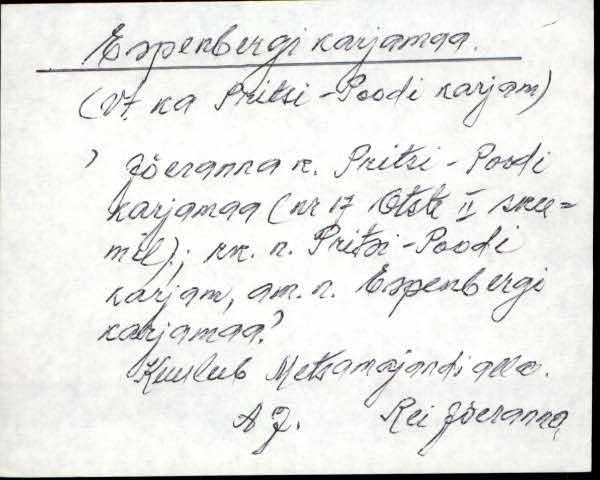 Espenbergi karjamaa.
(Vt. ka Pritsi-Poodi karjam)
' Jõeranna k. Pritsi-Poodi
karjamaa (nr 17 Otste II skee=
mil); rk. n. Pritsi-Poodi
karjam, am. n. Espenbergi
karjamaa.'
Kuulub Metsamajandi alla.
A J. Rei Jõeranna